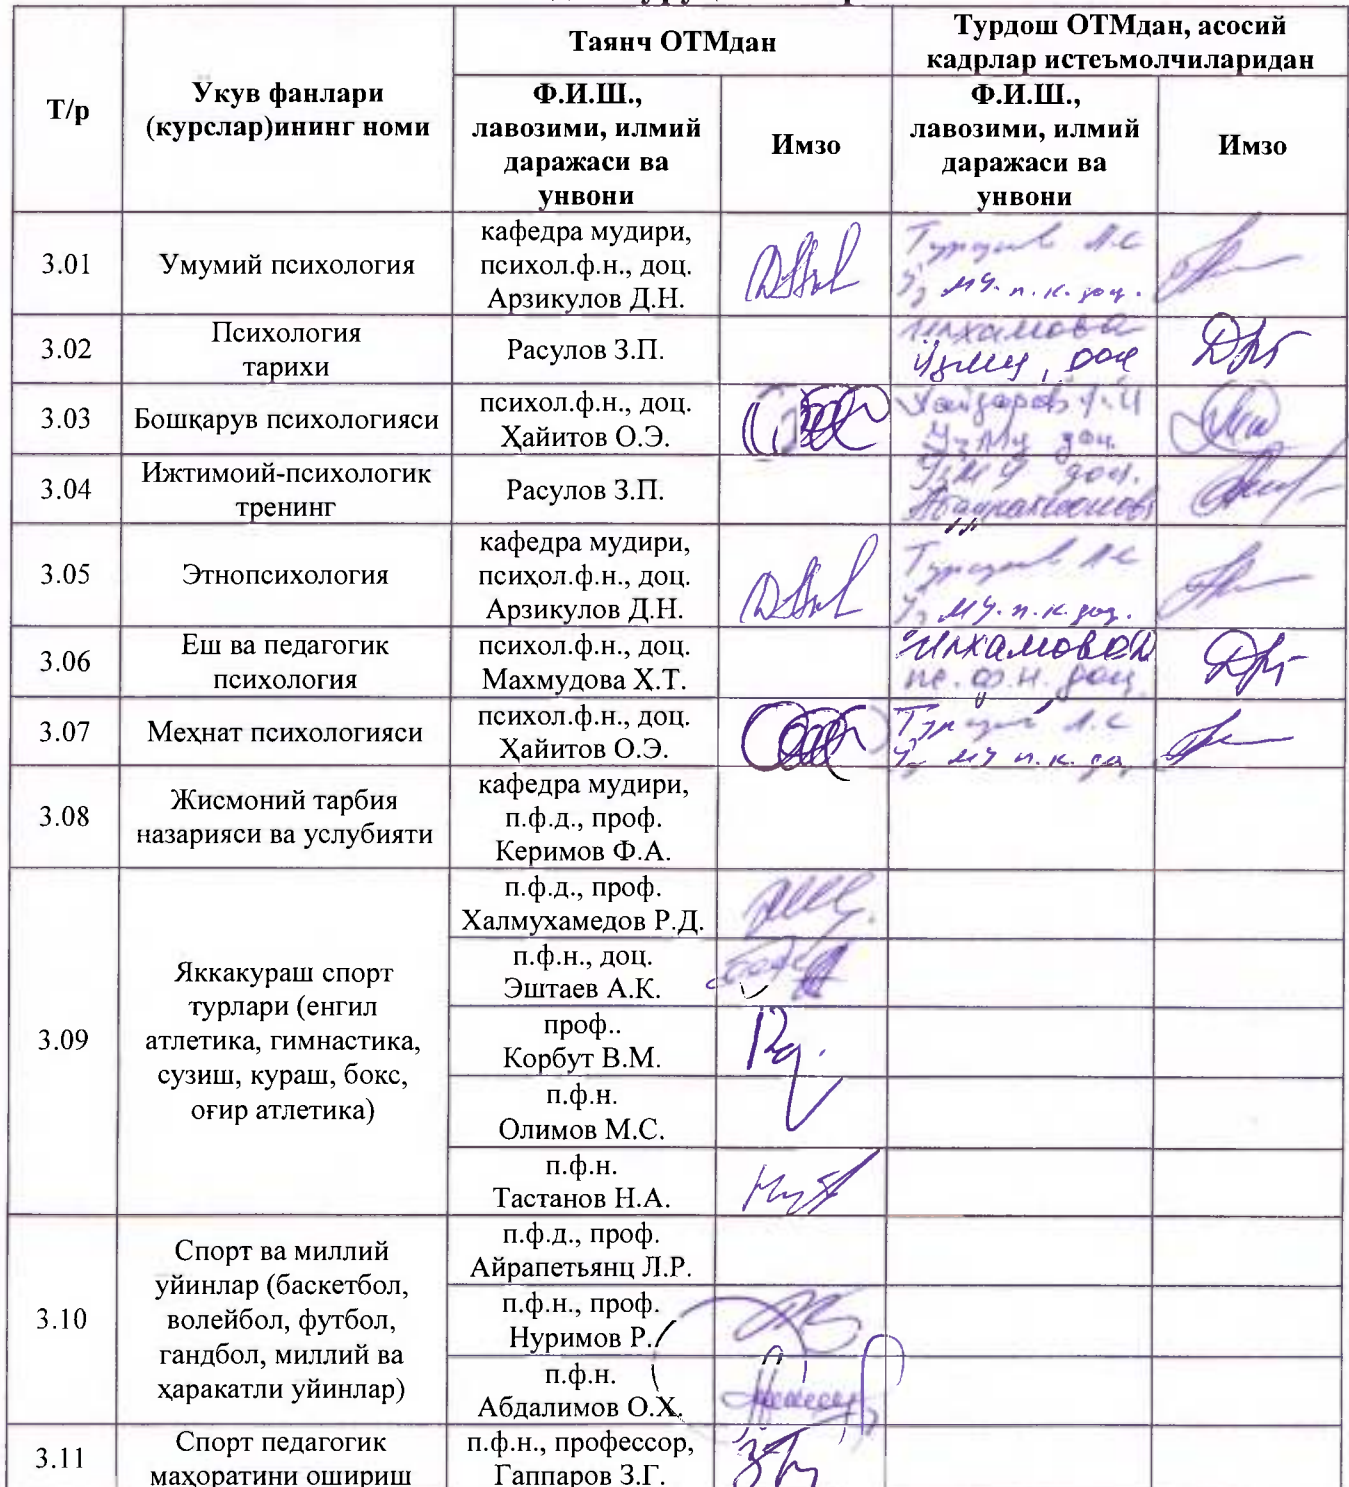 Т/р
Укув фанлари
(курслар)ининг номи
Таянч ОТМдан
Турдош ОТМдан, асосий
кадрлар истеъмолчиларидан
Ф.И.Ш.,
лавозими, илмий
даражаси ва
унвони
Имзо
Ф.И.Ш.,
лавозими, илмий
даражаси ва
унвони
Имзо
3.01
Умумий психология
кафедра мудири,
психол.ф.н., доц.
Арзикулов Д.Н.
3.02
Психология
тарихи
Расулов З.П.
Илхамова
ЎзМУ, доц
3.03
Бошқарув психологияси
психол.ф.н., доц.
Ҳайитов О.Э.
ЎзМУ доц.
3.04
Ижтимоий-психологик
тренинг
Расулов З.П.
ЎзМУ доц.
3.05
Этнопсихология
кафедра мудири,
психол.ф.н., доц.
Арзикулов Д.Н.
3.06
Еш ва педагогик
психология
психол.ф.н., доц.
Махмудова Х.Т.
Илхамова Д
пс.ф.н. доц
3.07
Меҳнат психологияси
психол.ф.н., доц.
Ҳайитов О.Э.
3.08
Жисмоний тарбия
назарияси ва услубияти
кафедра мудири,
п.ф.д., проф.
Керимов Ф.А.
3.09
Яккакураш спорт
турлари (енгил
атлетика, гимнастика,
сузиш, кураш, бокс,
оғир атлетика)
п.ф.д., проф.
Халмухамедов Р.Д.
п.ф.н., доц.
Эштаев А.К.
проф..
Корбут В.М.
п.ф.н.
Олимов М.С.
п.ф.н.
Тастанов Н.А.
3.10
Спорт ва миллий
уйинлар (баскетбол,
волейбол, футбол,
гандбол, миллий ва
ҳаракатли уйинлар)
п.ф.д., проф.
Айрапетьянц Л.Р.
п.ф.н., проф.
Нуримов Р.
п.ф.н.
Абдалимов О.Х.
3.11
Спорт педагогик
маҳоратини ошириш
п.ф.н., профессор,
Гаппаров З.Г.